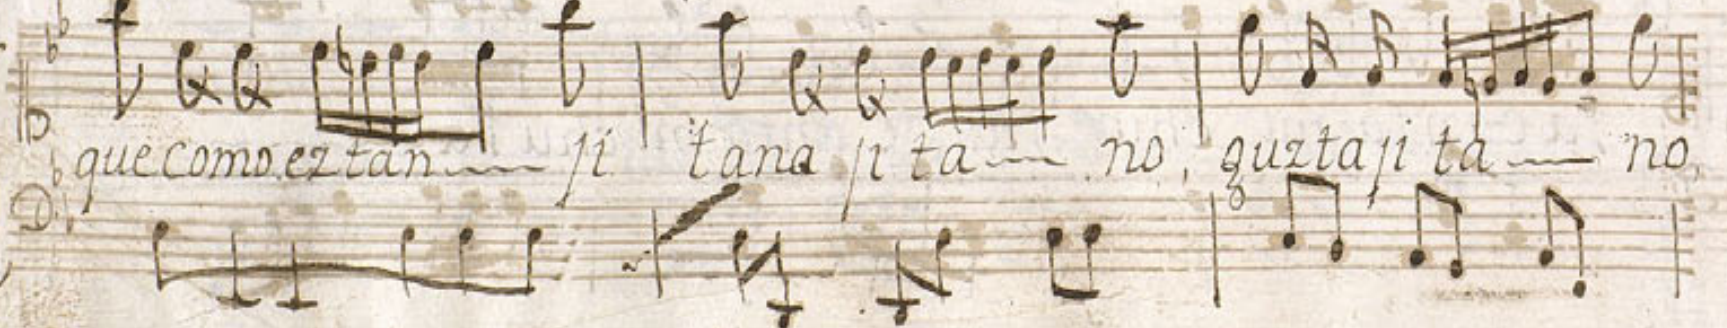 que como ez tan ji tana ji ta no, guzta ji ta no,